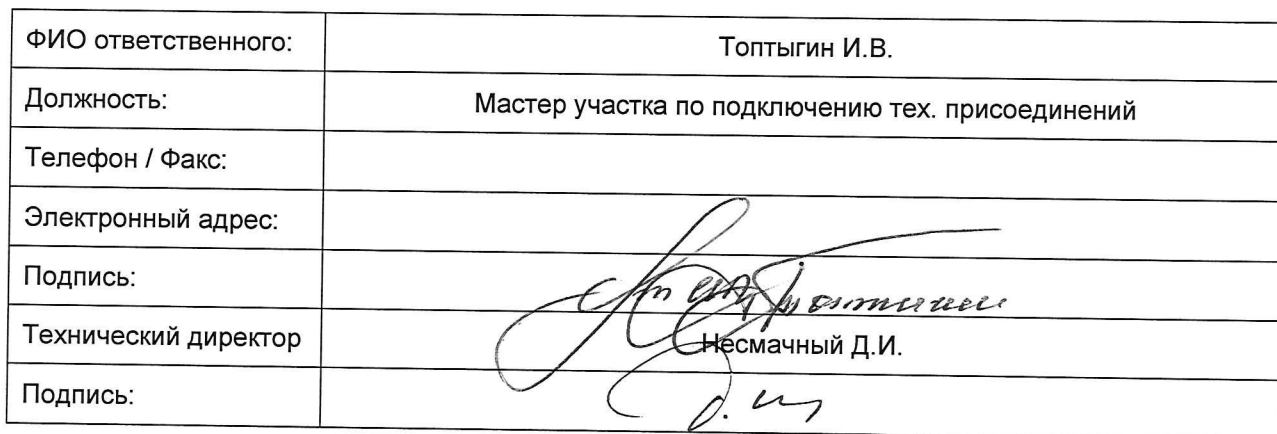 ФИО ответственного: Топтыгин И.В.
Должность: Мастер участка по подключению тех. присоединений
Телефон / Факс:
Электронный адрес:
Подпись:
Технический директор Несмачный Д.И.
Подпись: